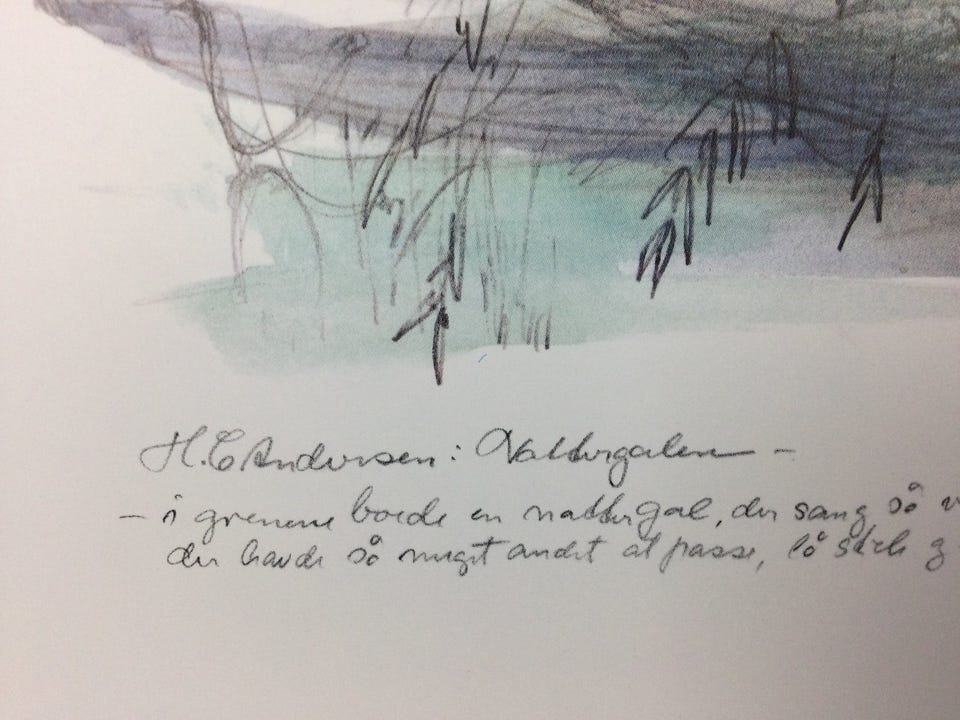 H.C Andersen: Nattergalen –
– i grenene boede en nattergal, der sang så
der havde så meget andet at passe, lå stille